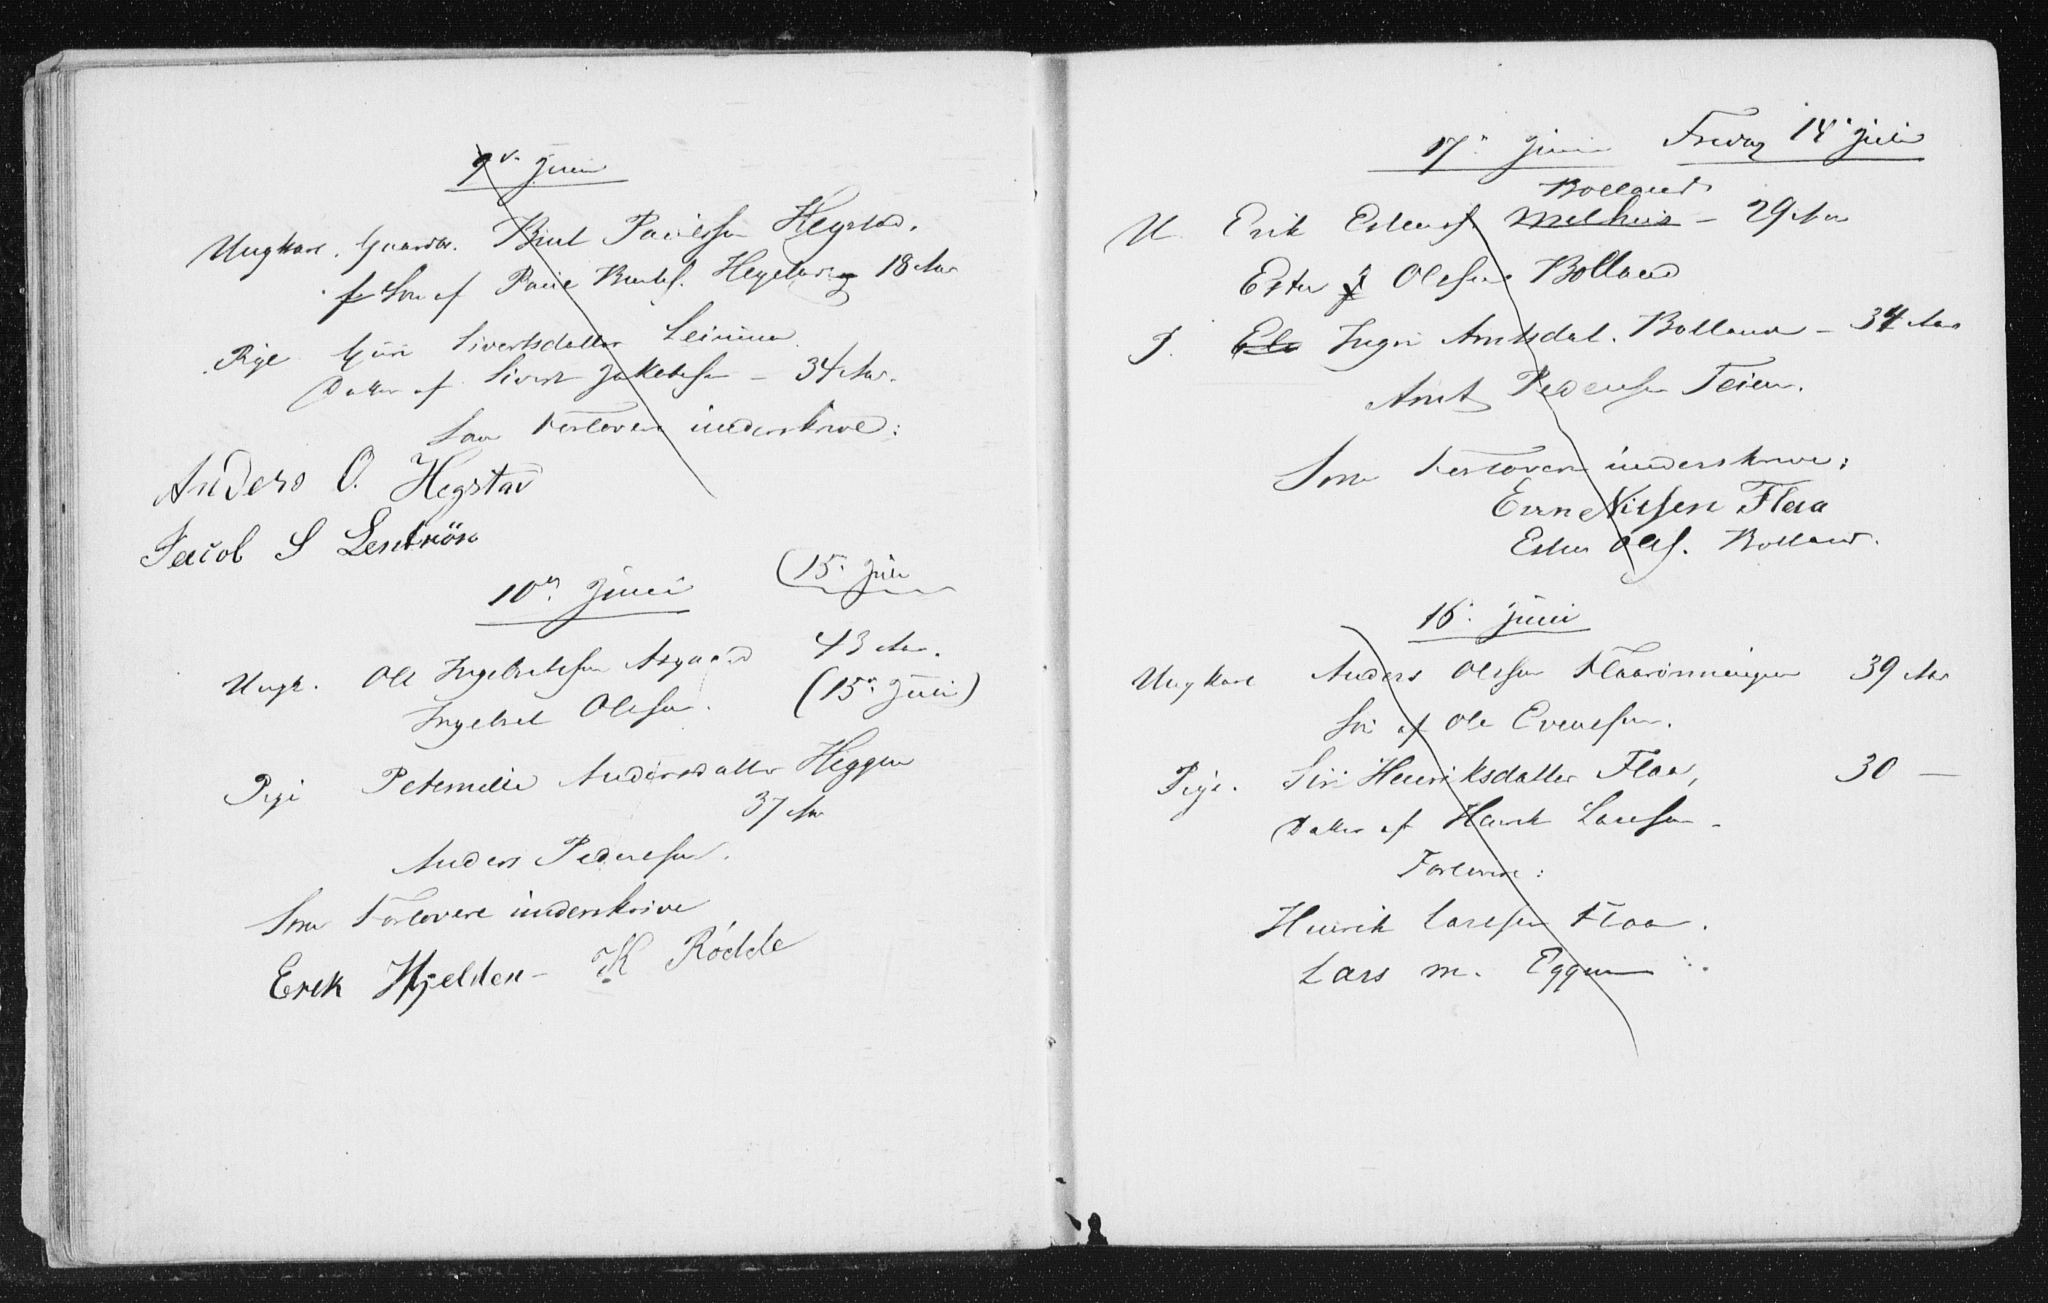 9de Juni
Ungkarl. Gaardbr. Brut Paulsen Hegstad.
Søn af Paul Brutss. Hegstad 18 Aar
Pige Guri Sivertsdatter Leinum
Datter af Sivert Jakobsen – 34 Aar.
Som Forlovere underskrive:
Anders O. Hegstad
Jacob S
10de Juni (15. Juli
Ungk. Ole Ingebretsen 43 Aar.
Ingebret Olsen. (15. Juli)
Pige Peternelle Andersdatter Heggen
37 Aar
Anders Pedersen.
Som Forlovere underskrive
Erek Hjelden – K Rødde
17. Juni Fredag 14 Juli
Bolland
U. Erik Estensen Melhus – 29 Aar
Esten Olsen Bolland
P. Ingri Arntsdat. Bolland – 34 Aar
Arnt Pedersen Teien.
Som Forlovere underskrive:
Even Nilsen Flaa
Esten Ols. Bolland.
16. Juni
Ungkarl Anders Olsen Flaarønningen 39 Aar
Søn af Ole Evensen.
Pige. Siri Henriksdatter Flaa, 30 —
Datter af Henrik Larsen –
Forlovere:
Henrik Larsen Flaa.
Lars M. Eggen